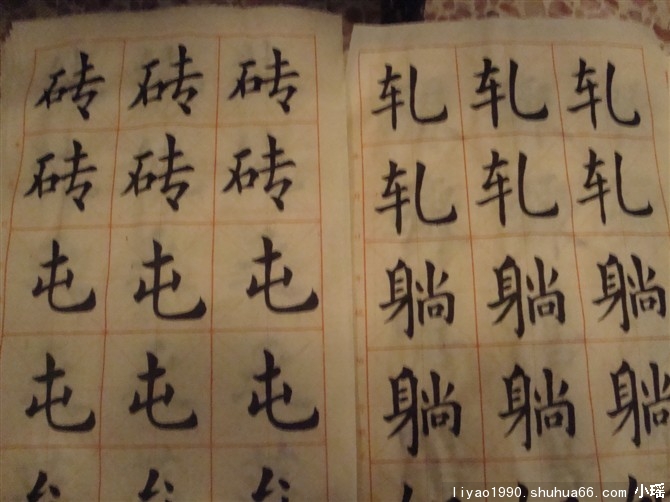 砖 砖 砖
砖 砖 砖
屯 屯 屯
屯 屯 屯
轧 轧 轧
轧 轧 轧
躺 躺 躺
躺 躺 躺
liyao1990.shuhua66.com 小瑶